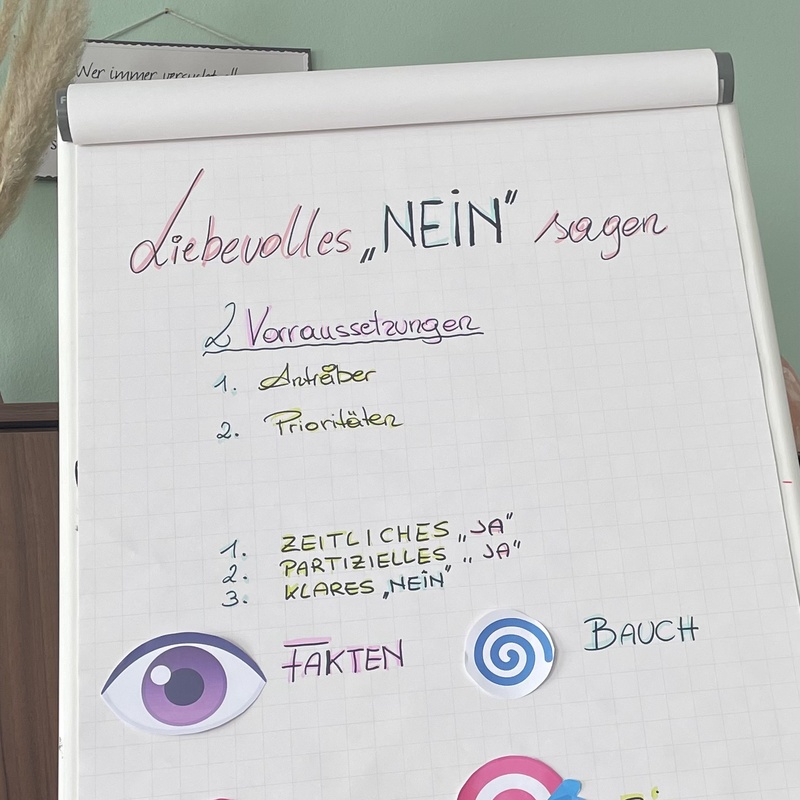 Wer immer versucht
Liebevolles „NEIN" sagen
2 Vorraussetzungen
1. Antreiber
2. Prioritäten
1. ZEITLICHES „JA"
2. PARTIZIELLES „JA"
3. KLARES „NEIN"
FAKTEN
BAUCH